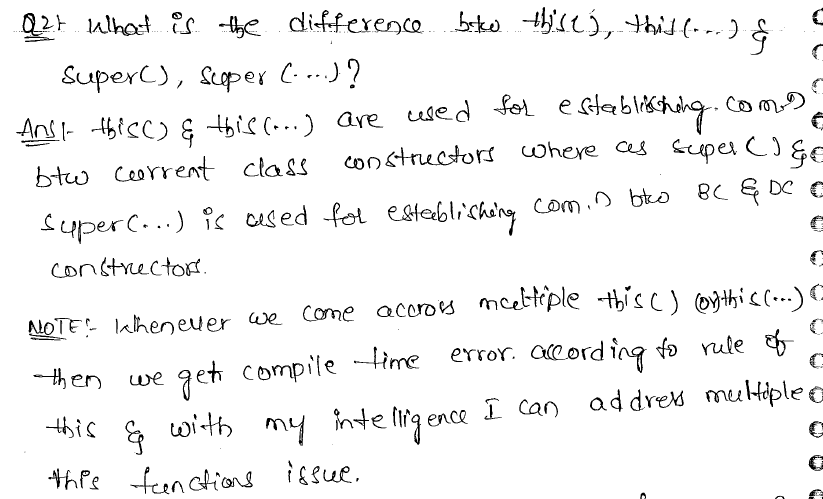 Q2:- What is the difference btw this(), this(...) &
super(), super (...)?
Ans:- this() & this(...) are used for establishing com.n
btw current class constructors where as super() &
super(...) is used for establishing com.n btw BC & DC
constructors.
NOTE:- Whenever we come accross multiple this() (or) this(...)
then we get compile time error. according to rule of
this & with my intelligence I can address multiple
this functions issue.